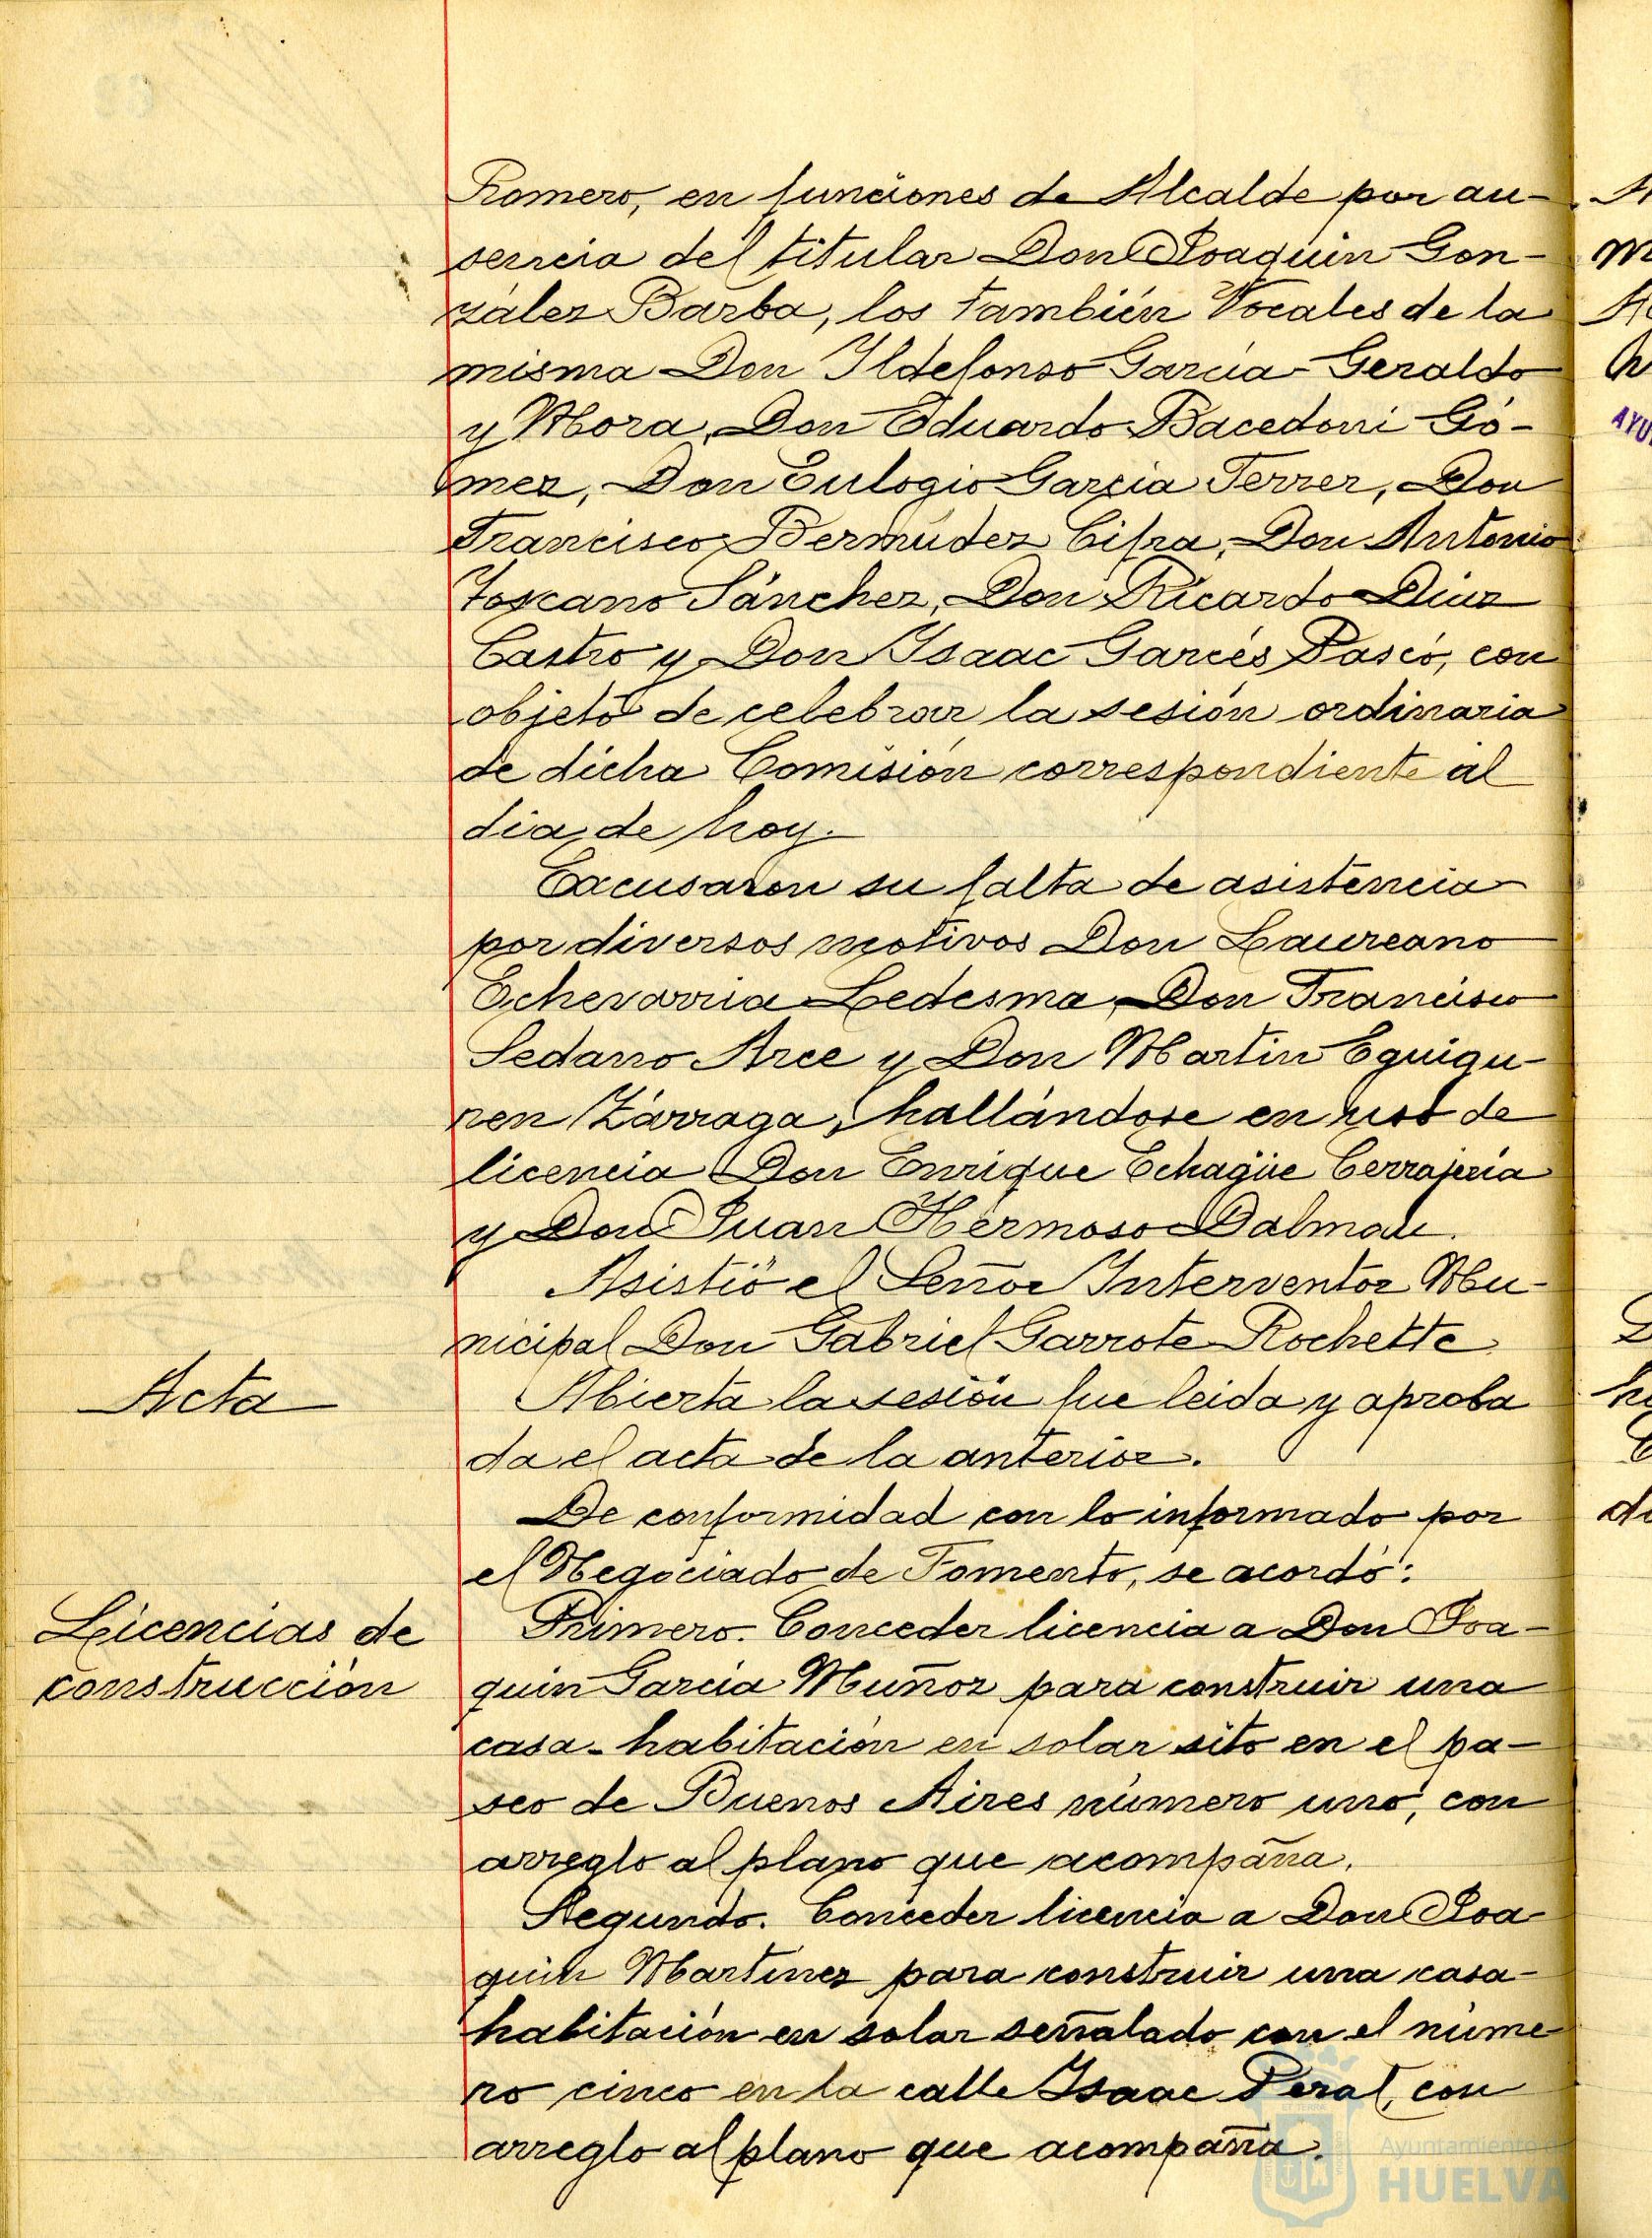 Romero, en funciones de Alcalde por au-
sencia del titular Don Joaquin Gon-
zález Barba, los también Vocales de la
misma Don Ildefonso García-Geraldo
y Mora, Don Eduardo Bacedoni Gó-
mez, Don Eulogio García Ferrer, Don
Francisco Bermúdez Cifra, Don Antonio
Toscano Sánchez, Don Ricardo Diaz
Castro y Don Isaac Garcés Pascó, con
objeto de celebrar la sesión ordinaria
de dicha Comisión correspondiente al
dia de hoy.
Excusaron su falta de asistencia
por diversos motivos Don Laureano
Echevarria Ledesma, Don Francisco
Sedano Arce y Don Martin Eguigu-
ren Zárraga, hallándose en uso de
licencia Don Enrique Echagüe Cerrajería
y Don Juan Hermoso Dalmau.
Asistió el Señor Interventor Mu-
nicipal Don Gabriel Garrote Rochette.
Acta
Abierta la sesión fue leida y aproba
da el acta de la anterior.
De conformidad con lo informado por
el Negociado de Fomento, se acordó:
Licencias de
construcción
Primero. Conceder licencia a Don Joa-
quin García Muñoz para construir una
casa-habitación en solar sito en el pa-
seo de Buenos Aires número uno, con
arreglo al plano que acompaña.
Segundo. Conceder licencia a Don Joa-
quin Martínez para construir una casa-
habitación en solar señalado con el núme-
ro cinco en la calle Isaac Peral, con
arreglo al plano que acompaña.
Ayuntamiento
HUELVA